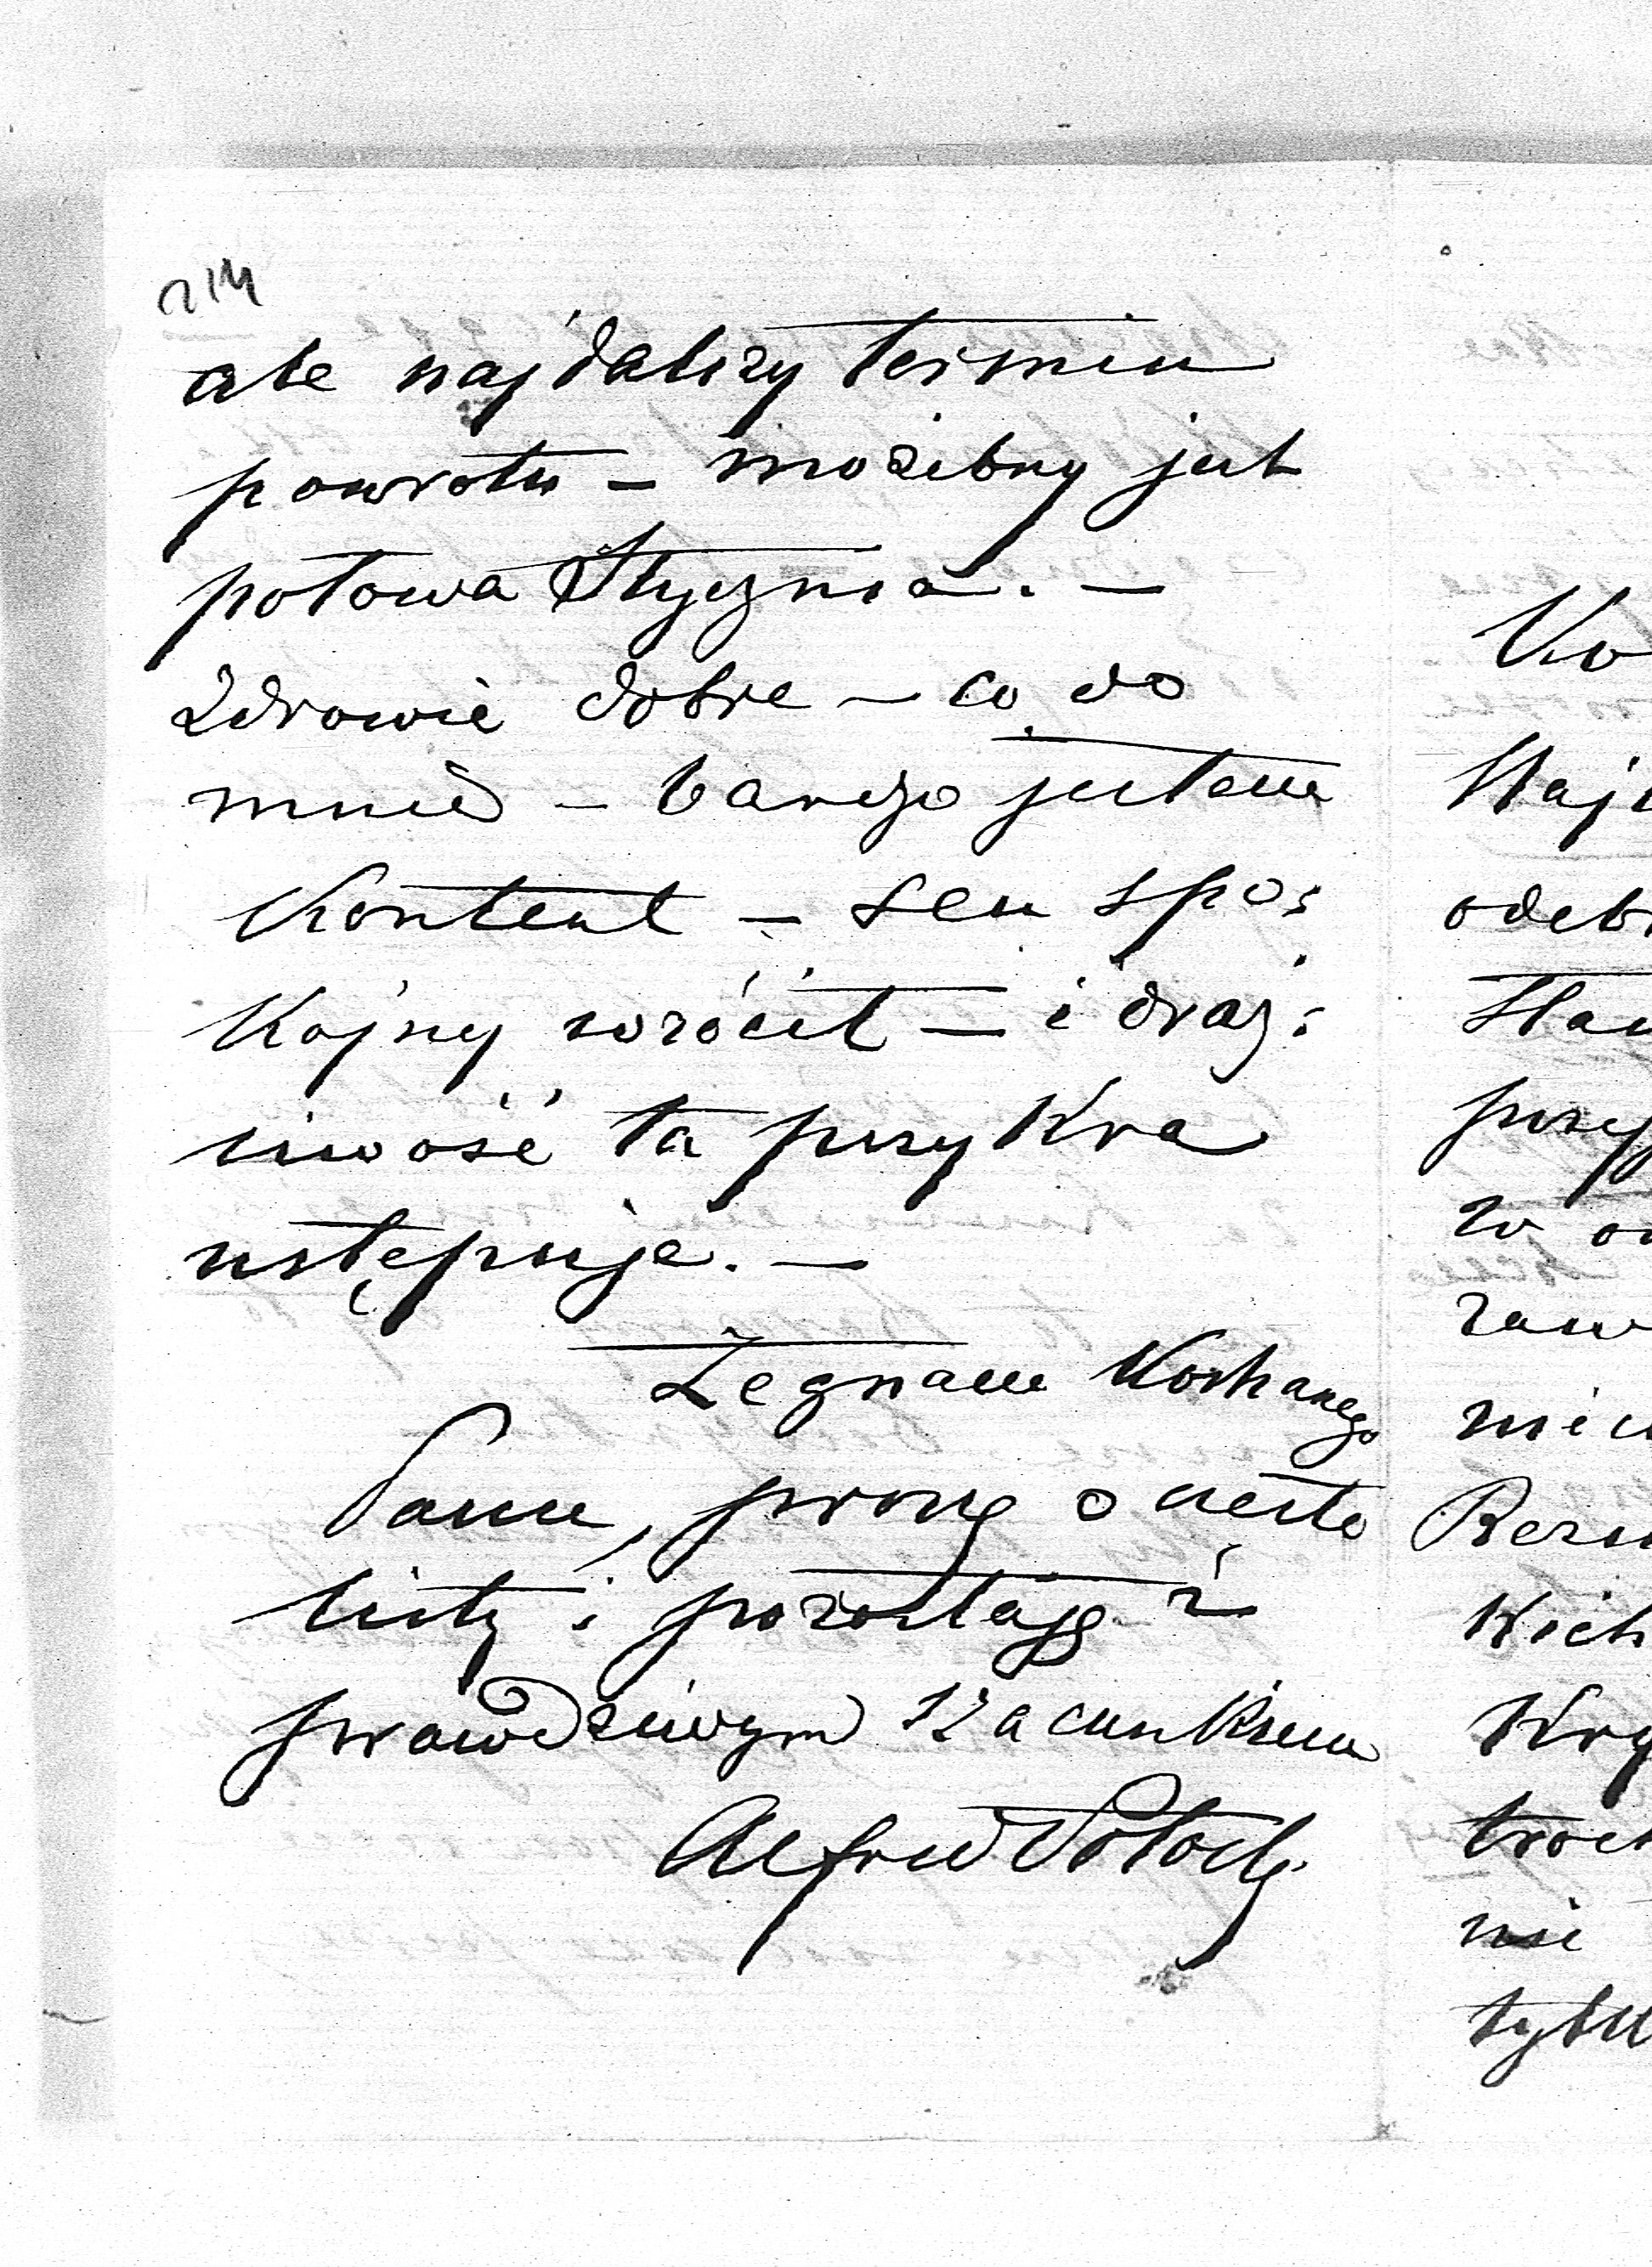 214
ale najdalszy termin
powrotu – możebny jest
połowa Stycznia. –
Zdrowie dobre – co do
mnie – bardzo jestem
Kontent – sen spo:
Kojny wrócił – i draż:
liwość ta przykra
ustępuje. –
Żegnam Kochanego
Pana, proszę o częste
listy i pozostaję z
prawdziwym szacunkiem
Alfred Potocki
Ko
Naj
odeb
Stan
przy
w
zaw
nie
Kich
Kry
troch
nie
tylk